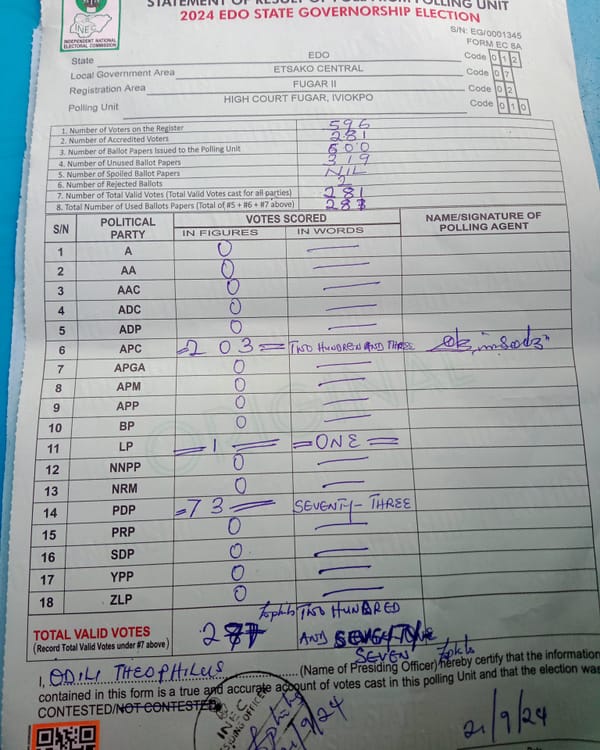 STATEMENT OF RESULT OF POLL FROM POLLING UNIT
2024 EDO STATE GOVERNORSHIP ELECTION
INEC
INDEPENDENT NATIONAL
ELECTORAL COMMISSION
S/N: EG/0001345
FORM EC 8A
State EDO Code 0 1 2
Local Government Area ETSAKO CENTRAL Code 0 7
Registration Area FUGAR II Code 0 2
Polling Unit HIGH COURT FUGAR, IVIOKPO Code 0 1 0
1. Number of Voters on the Register 595
2. Number of Accredited Voters 281
3. Number of Ballot Papers Issued to the Polling Unit 600
4. Number of Unused Ballot Papers 319
5. Number of Spoiled Ballot Papers NIL
6. Number of Rejected Ballots
7. Number of Total Valid Votes (Total Valid Votes cast for all parties) 281
8. Total Number of Used Ballots Papers (Total of #5 + #6 + #7 above)
S/N POLITICAL PARTY VOTES SCORED NAME/SIGNATURE OF POLLING AGENT
IN FIGURES IN WORDS
1 A 0
2 AA 0
3 AAC 0
4 ADC 0
5 ADP 0
6 APC =203= TWO HUNDRED AND THREE
7 APGA 0
8 APM 0
9 APP 0
10 BP 0
11 LP =1= =ONE=
12 NNPP 0
13 NRM 0
14 PDP =73= SEVENTY-THREE
15 PRP 0
16 SDP 0
17 YPP 0
18 ZLP 0
ORIGINAL
TOTAL VALID VOTES TWO HUNDRED
(Record Total Valid Votes under #7 above) AND
SEVEN
I, ODILI THEOPHILUS (Name of Presiding Officer) hereby certify that the information
contained in this form is a true and accurate account of votes cast in this polling Unit and that the election was
CONTESTED/NOT CONTESTED
INEC
PRESIDING OFFICER
21/9/24
21/9/24